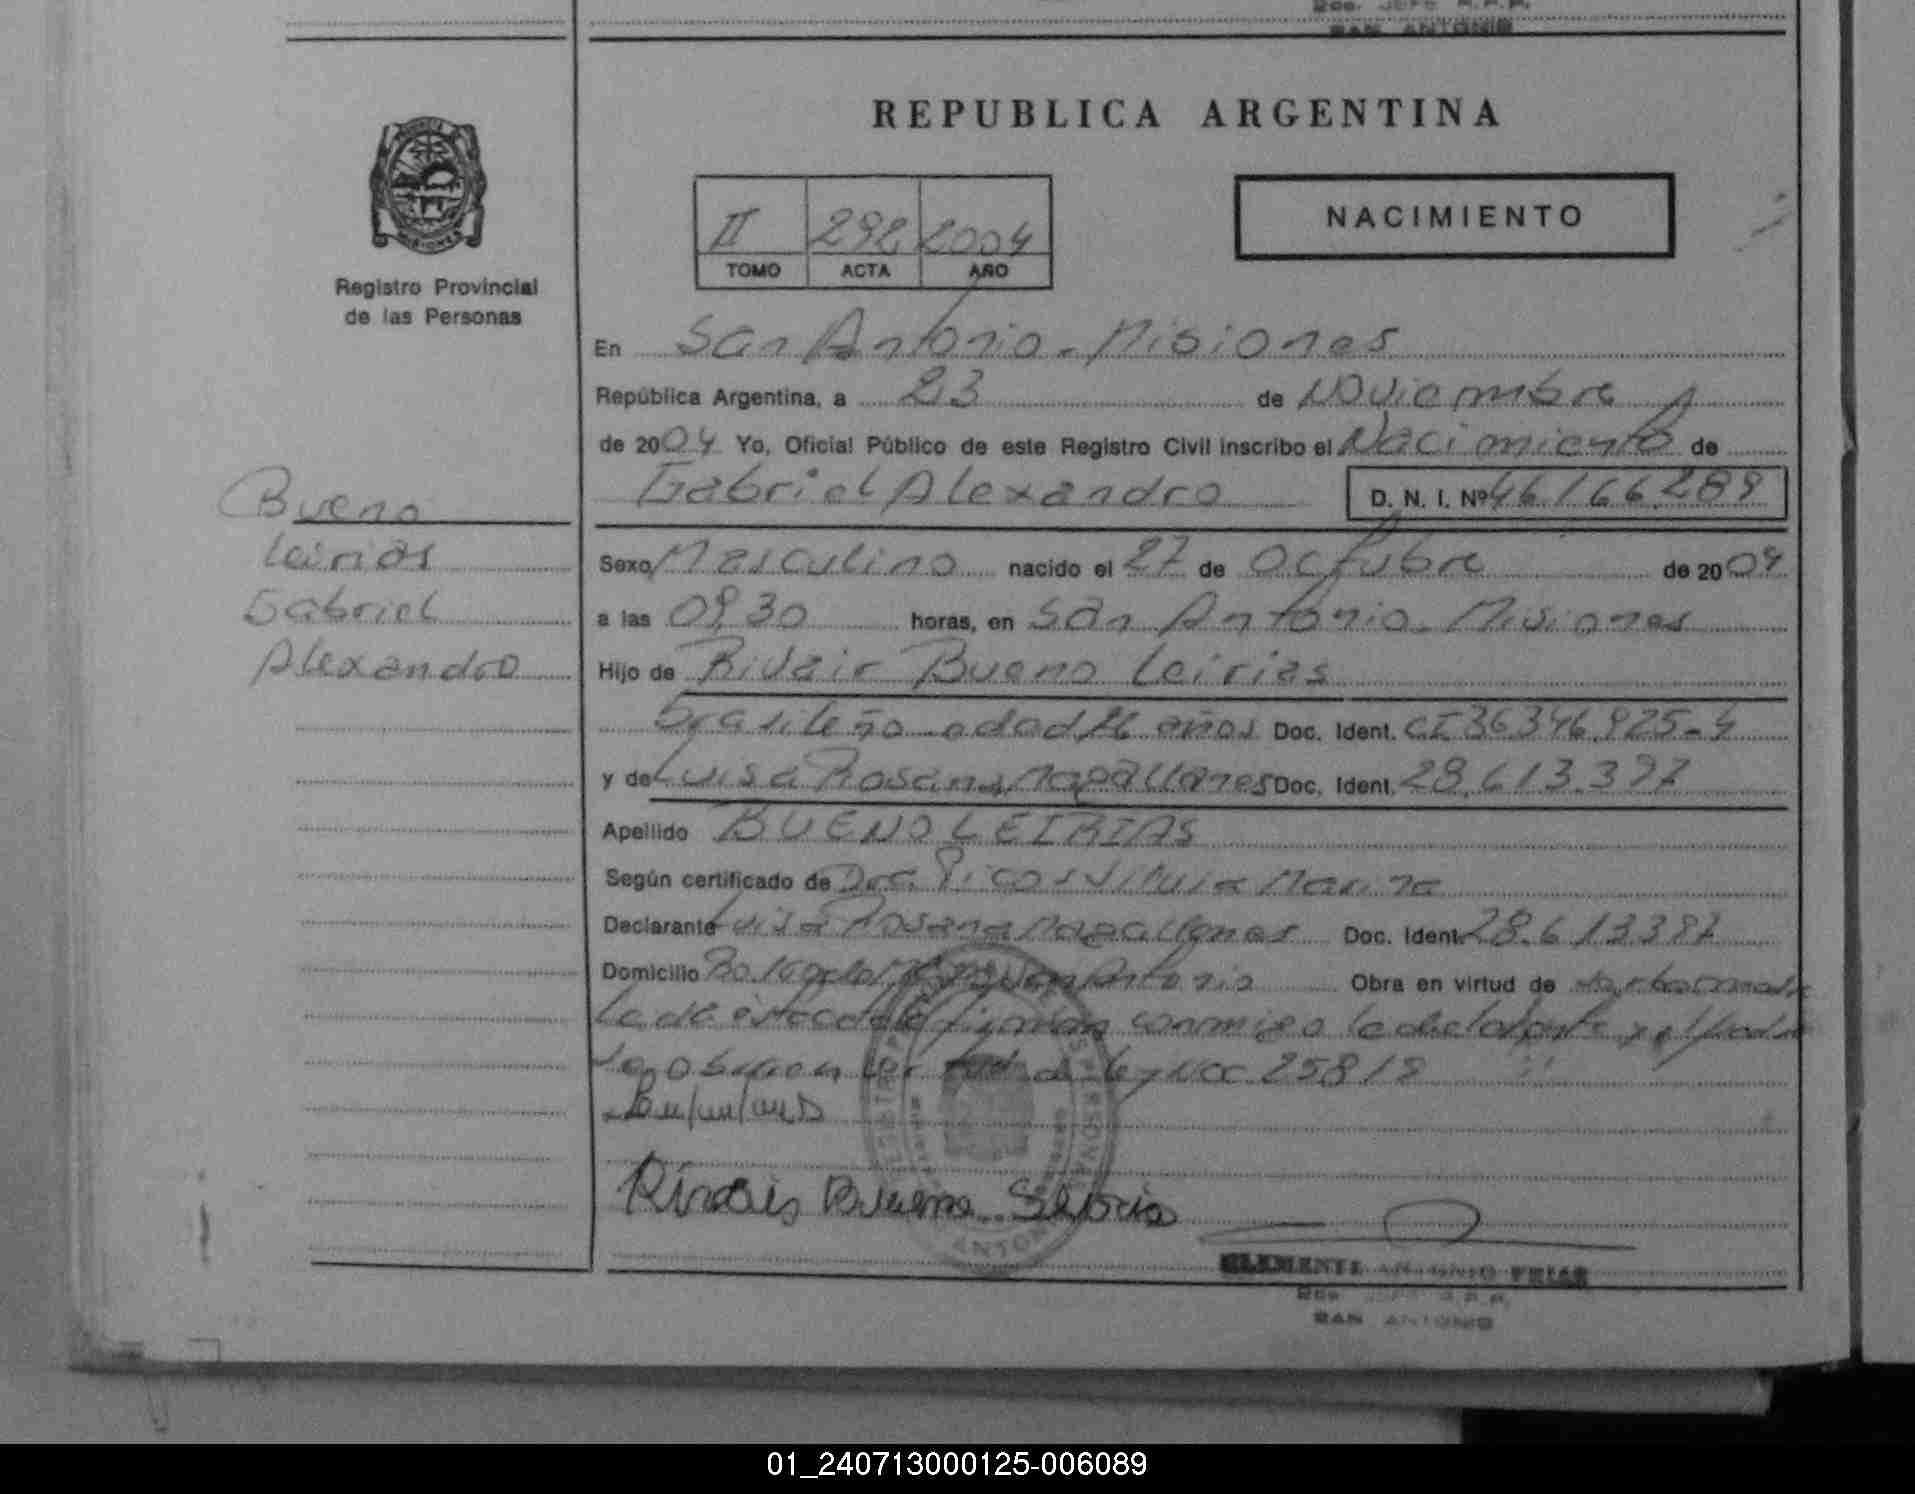 SAN ANTONIO
REPUBLICA ARGENTINA
NACIMIENTO
II 292 2004
TOMO ACTA AÑO
Registro Provincial
de las Personas
En San Antonio - Misiones
República Argentina, a 23 de Noviembre
de 2004 Yo, Oficial Público de este Registro Civil inscribo el Nacimiento de
Gabriel Alexandro D. N. I. Nº 46.166.289
Bueno
Leirias
Gabriel
Alexandro
Sexo Masculino nacido el 27 de Octubre de 2004
a las 09,30 horas, en San Antonio - Misiones
Hijo de Rivair Bueno Leirias
Brasileño edad años Doc. Ident. CI 36346.925-4
y de Luisa Rosana Magallanes Doc. Ident. 28.613.397
Apellido BUENO LEIRIAS
Según certificado de Doc. Marina
Declarante Luisa Rosana Magallanes Doc. Ident. 28.613397
Domicilio San Antonio Obra en virtud de
firman conmigo la
de Ley Nº 25818
Bueno
CLEMENTE ANTONIO FRIAS
SAN ANTONIO
01_240713000125-006089